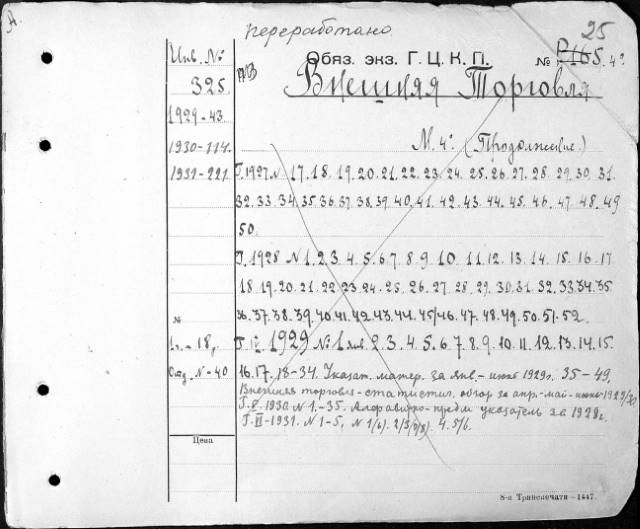 А.
переработано.
25
Инв. №
Обяз. экз. Г. Ц. К. П.
№ Р165. 4°
325
Внешняя Торговля
1929-43.
М. 4°. (Продолжение.)
1930-114.
1931-221.
Г. 1927. N. 17. 18. 19. 20. 21. 22. 23. 24. 25. 26. 27. 28. 29. 30. 31.
32. 33. 34. 35. 36. 37. 38. 39. 40. 41. 42. 43. 44. 45. 46. 47. 48. 49
50.
Г. 1928 N 1. 2. 3. 4. 5. 6. 7. 8. 9. 10. 11. 12. 13. 14. 15. 16. 17
18. 19. 20. 21. 22. 23. 24. 25. 26. 27. 28. 29. 30. 31. 32. 33. 34. 35
36. 37. 38. 39. 40. 41. 42. 43. 44. 45/46. 47. 48. 49. 50. 51. 52.
№
Г. IV. 1929 № 1 янв. 2. 3. 4. 5. 6. 7. 8. 9. 10. 11. 12. 13. 14. 15.
1. - 18,
Отд. N - 40
16. 17. 18-34. Указат. матер. за янв. - июнь 1929г. 35-49.
Внешняя торговля - статистич. обзор за апр. - май - июнь - 1929/30
Г. V. 1930. N 1. - 35. Алфавитно-предм указатель за 1928г.
Г. VI - 1931. N 1-5, N 1(6). 2/3(7/8). 4. 5/6.
Цена
8-я Транспечати-1447.